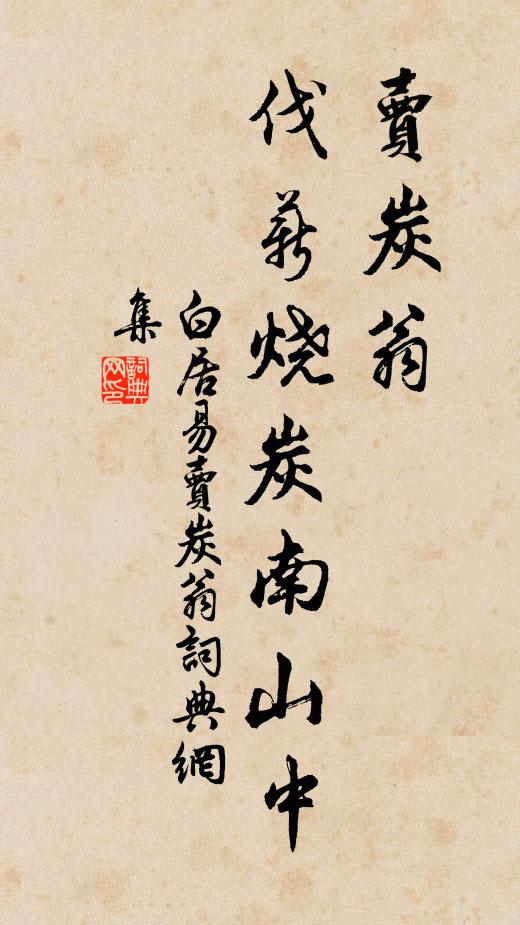 賣炭翁
伐薪烧炭南山中
白居易賣炭翁詞典網
集
詞典網印